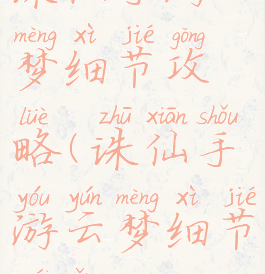 mèng xì jié gōng
梦细节攻
lüè zhū xiān shǒu
略(诛仙手
yóu yún mèng xì jié
游云梦细节